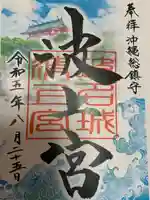 奉拝 沖縄総鎮守
波上宮
令和五年八月二十五日